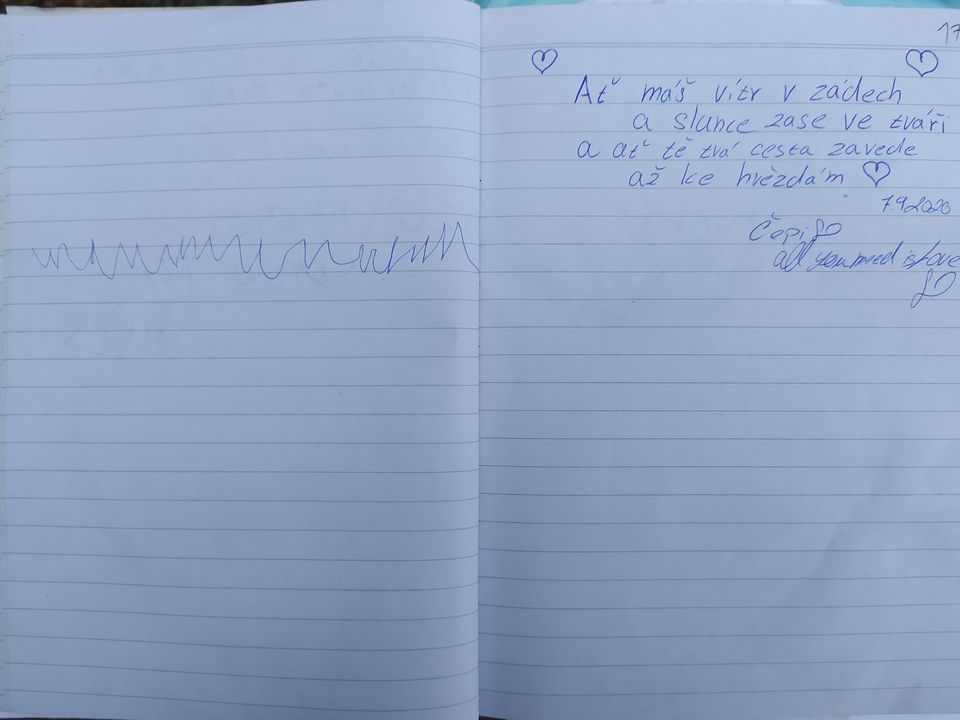 17
Ať máš vítr v zádech
a slunce zase ve tváři
a ať tě tvá cesta zavede
až ke hvězdám
7.9.2020
Čepi
all you need is love